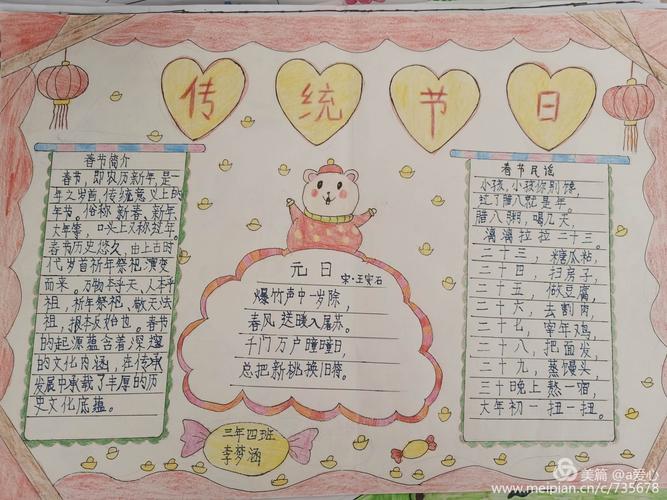 传统节日
春节简介
春节，即农历新年，是一
年之岁首，传统意义上的
年节。俗称新春、新年、
大年等，口头上又称过年。
春节历史悠久，由上古时
代岁首祈年祭祀演变
而来。万物本乎天，人本乎
祖，祈年祭祀，敬天法
祖，报本反始也。春节
的起源蕴含着深邃
的文化内涵，在传承
发展中承载了丰厚的历
史文化底蕴。
元日
宋·王安石
爆竹声中一岁除，
春风送暖入屠苏。
千门万户曈曈日，
总把新桃换旧符。
三年四班
李梦涵
春节民谣
小孩，小孩你别馋，
过了腊八就是年。
腊八粥，喝几天，
漓漓拉拉二十三。
二十三，糖瓜粘，
二十四，扫房子，
二十五，做豆腐，
二十六，去割肉，
二十七，宰年鸡，
二十八，把面发，
二十九，蒸馒头
三十日晚上熬一宿，
大年初一扭一扭。
美篇 @a爱心
www.meipian.cn/c/735678